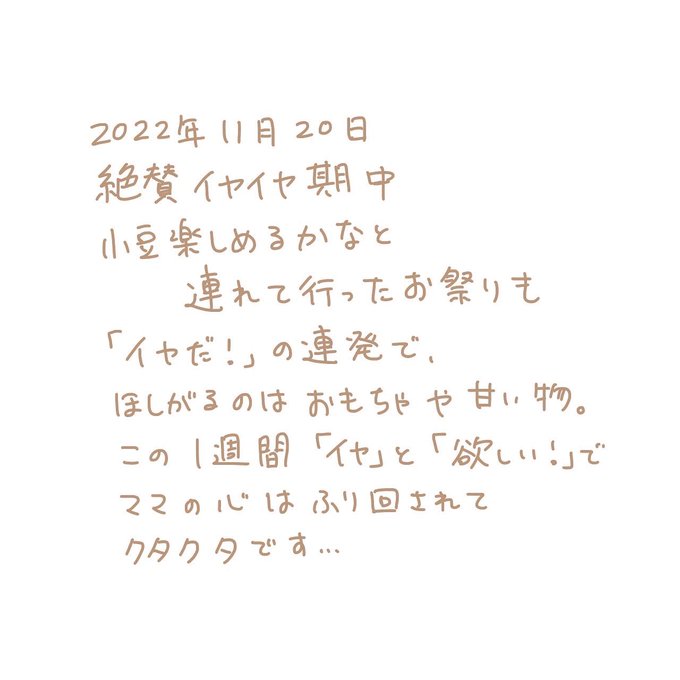 2022年11月20日
絶賛イヤイヤ期中
小豆楽しめるかなと
連れて行ったお祭りも
「イヤだ!」の連発で、
ほしがるのはおもちゃや甘い物。
この1週間「イヤ」と「欲しい!」で
ママの心はふり回されて
クタクタです…